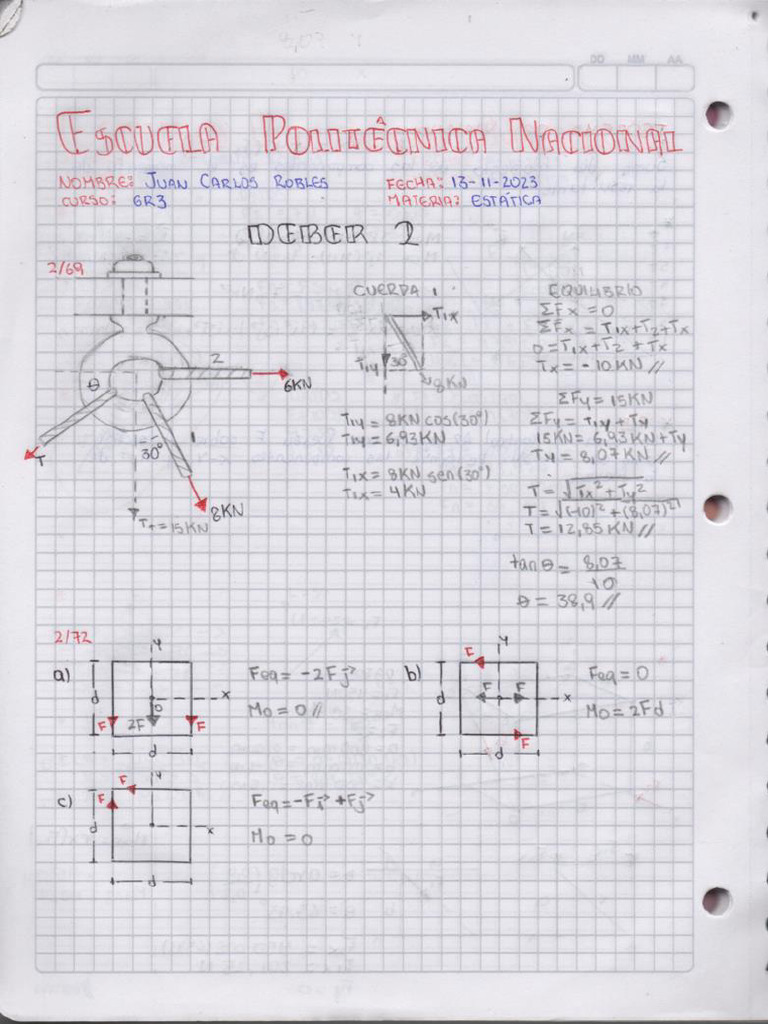 DD MM AA
ESCUELA POLITÉCNICA NACIONAL
NOMBRE: JUAN CARLOS ROBLES
FECHA: 13-11-2023
CURSO: GR3
MATERIA: ESTÁTICA
DEBER 2
2/69
2
6KN
θ
T
1
30°
8KN
Tt=15KN
CUERDA 1
T1x
T1y
30°
8KN
T1y = 8KN cos(30°)
T1y = 6,93KN
T1x = 8KN sen(30°)
T1x = 4KN
EQUILIBRIO
ΣFx = 0
ΣFx = T1x+T2+Tx
0=T1x+T2 +Tx
Tx = -10KN //
ΣFy = 15KN
ΣFy = T1y + Ty
15KN= 6,93KN+Ty
Ty = 8,07KN //
T = √Tx²+Ty²
T= √(-10)²+(8,07)²
T= 12,85 KN //
tan θ = 8,07
10
θ = 38,9 //
2/72
a)
y
x
d
O
F
2F
F
d
Feq= -2Fj→
Mo= 0 //
b)
F
y
d
F
F
x
F
d
Feq= 0
Mo= 2Fd
c)
F
F
y
d
x
d
Feq=-Fi→ +Fj→
Mo = 0